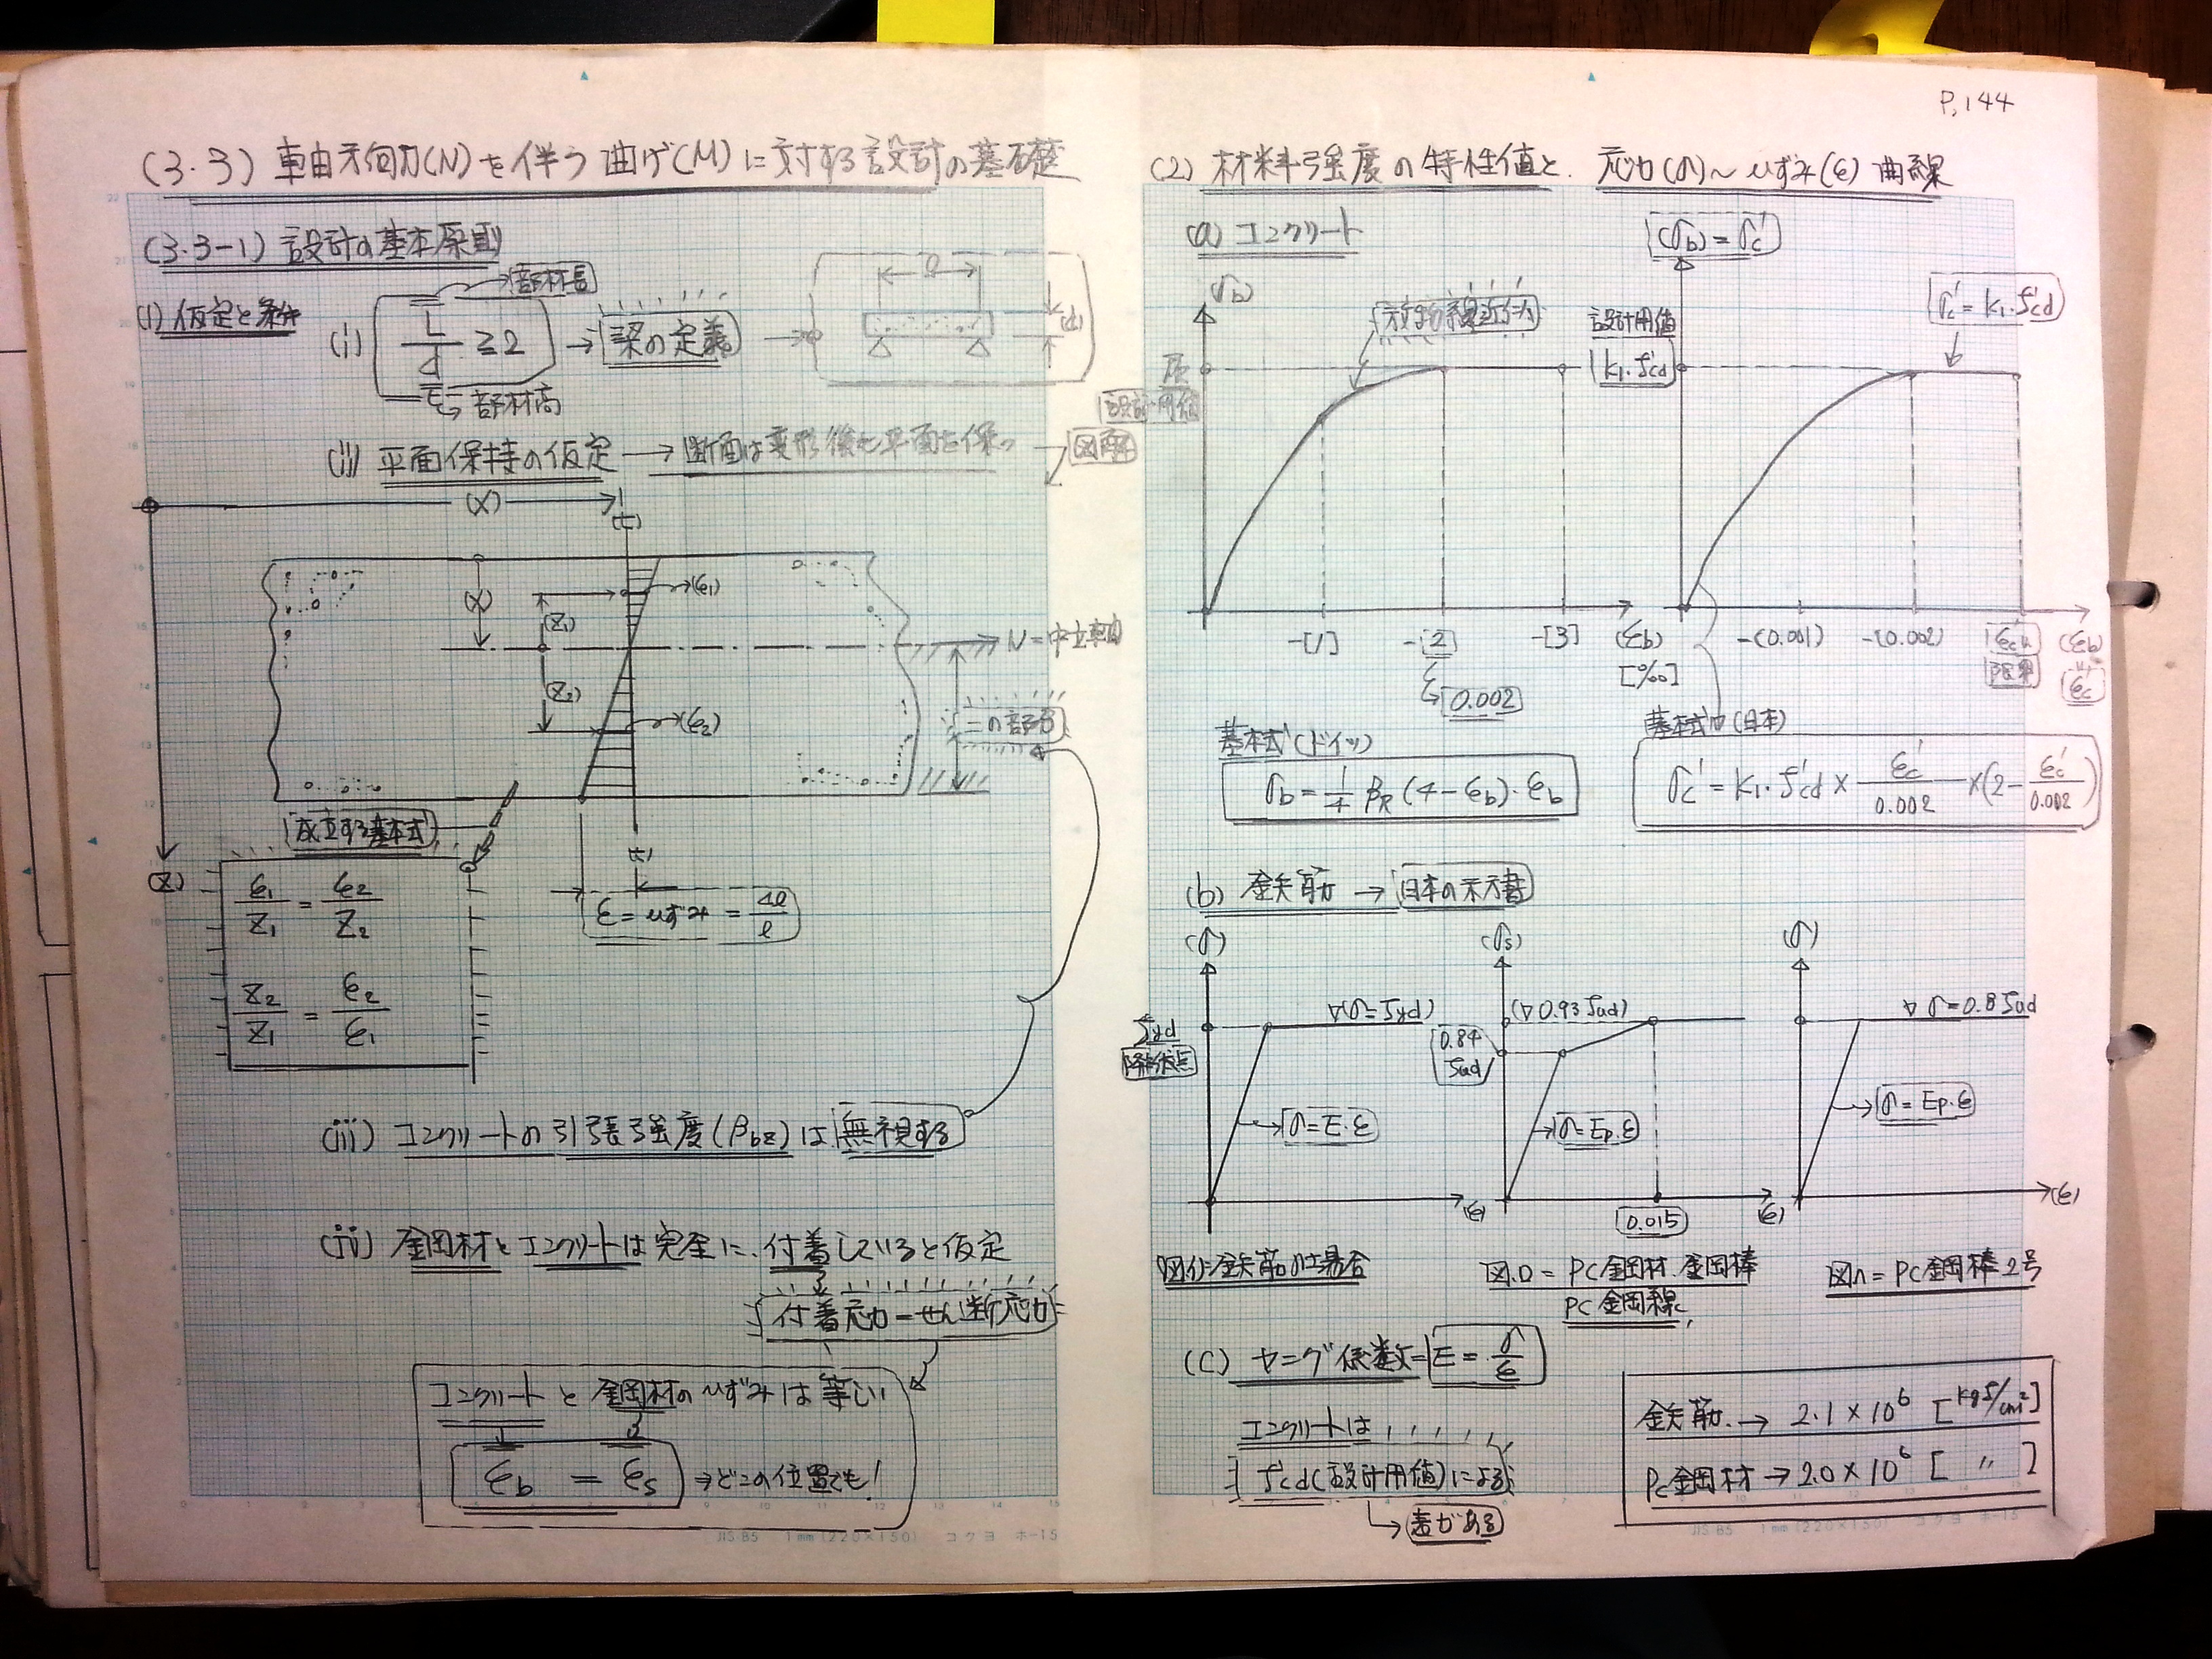 P.144
(3.3) 軸方向力(N)を伴う曲げ(M)に対する設計の基礎
(3.3-1) 設計の基本原則
(1) 仮定と条件
(i) L/d ≧ 2 → 梁の定義 →
部材長
部材高
l
(d)
(ii) 平面保持の仮定 → 断面は変形後も平面を保つ
図解
(X)
(t)
(X)
(Z1)
(Z2)
(ε1)
(ε2)
N=中立軸
この部分
成立する基本式
(Z)
(t)
ε1/Z1 = ε2/Z2
Z2/Z1 = ε2/ε1
ε=ひずみ=Δl/l
(iii) コンクリートの引張強度(βbz)は無視する
(iv) 鋼材とコンクリートは完全に、付着していると仮定
付着応力=せん断応力
コンクリートと鋼材のひずみは等しい
εb = εs ⇒どこの位置でも!
JIS B5 1mm (220×150) コクヨ ホ-15
(2) 材料強度の特性値と、応力(σ)~ひずみ(ε)曲線
(a) コンクリート
(σb)
放物線近似
βR
設計用値
-[1] -[2] -[3] (εb)
[‰]
0.002
(σb)=σc'
設計用値
k1・f'cd
σc'=k1・f'cd
-(0.001) -(0.002) ε'cu (εb)
限界
ε'c
基本式(ドイツ)
σb=1/4 βR(4-εb)・εb
基本式(日本)
σc'=k1・f'cd×ε'c/0.002×(2-ε'c/0.002)
(b) 鉄筋 → 日本の示方書
(σ) (σs) (σ)
fyd
降伏点
▽(σ=fyd)
σ=E・ε
(ε)
(▽0.93fud)
0.84
fud
σ=Ep・ε
0.015
(ε)
▽ σ=0.8fud
σ=Ep・ε
(ε)
図.イ=鉄筋の場合
図.ロ=PC鋼材.鋼棒
PC鋼線
図ハ=PC鋼棒2号
(C) ヤング係数=E=σ/ε
コンクリートは
f'cd(設計用値)による
表がある
鉄筋 → 2.1×10⁶ [kgf/cm²]
PC鋼材→2.0×10⁶ [ 〃 ]
JIS B5 1mm (220×150) コクヨ ホ-15